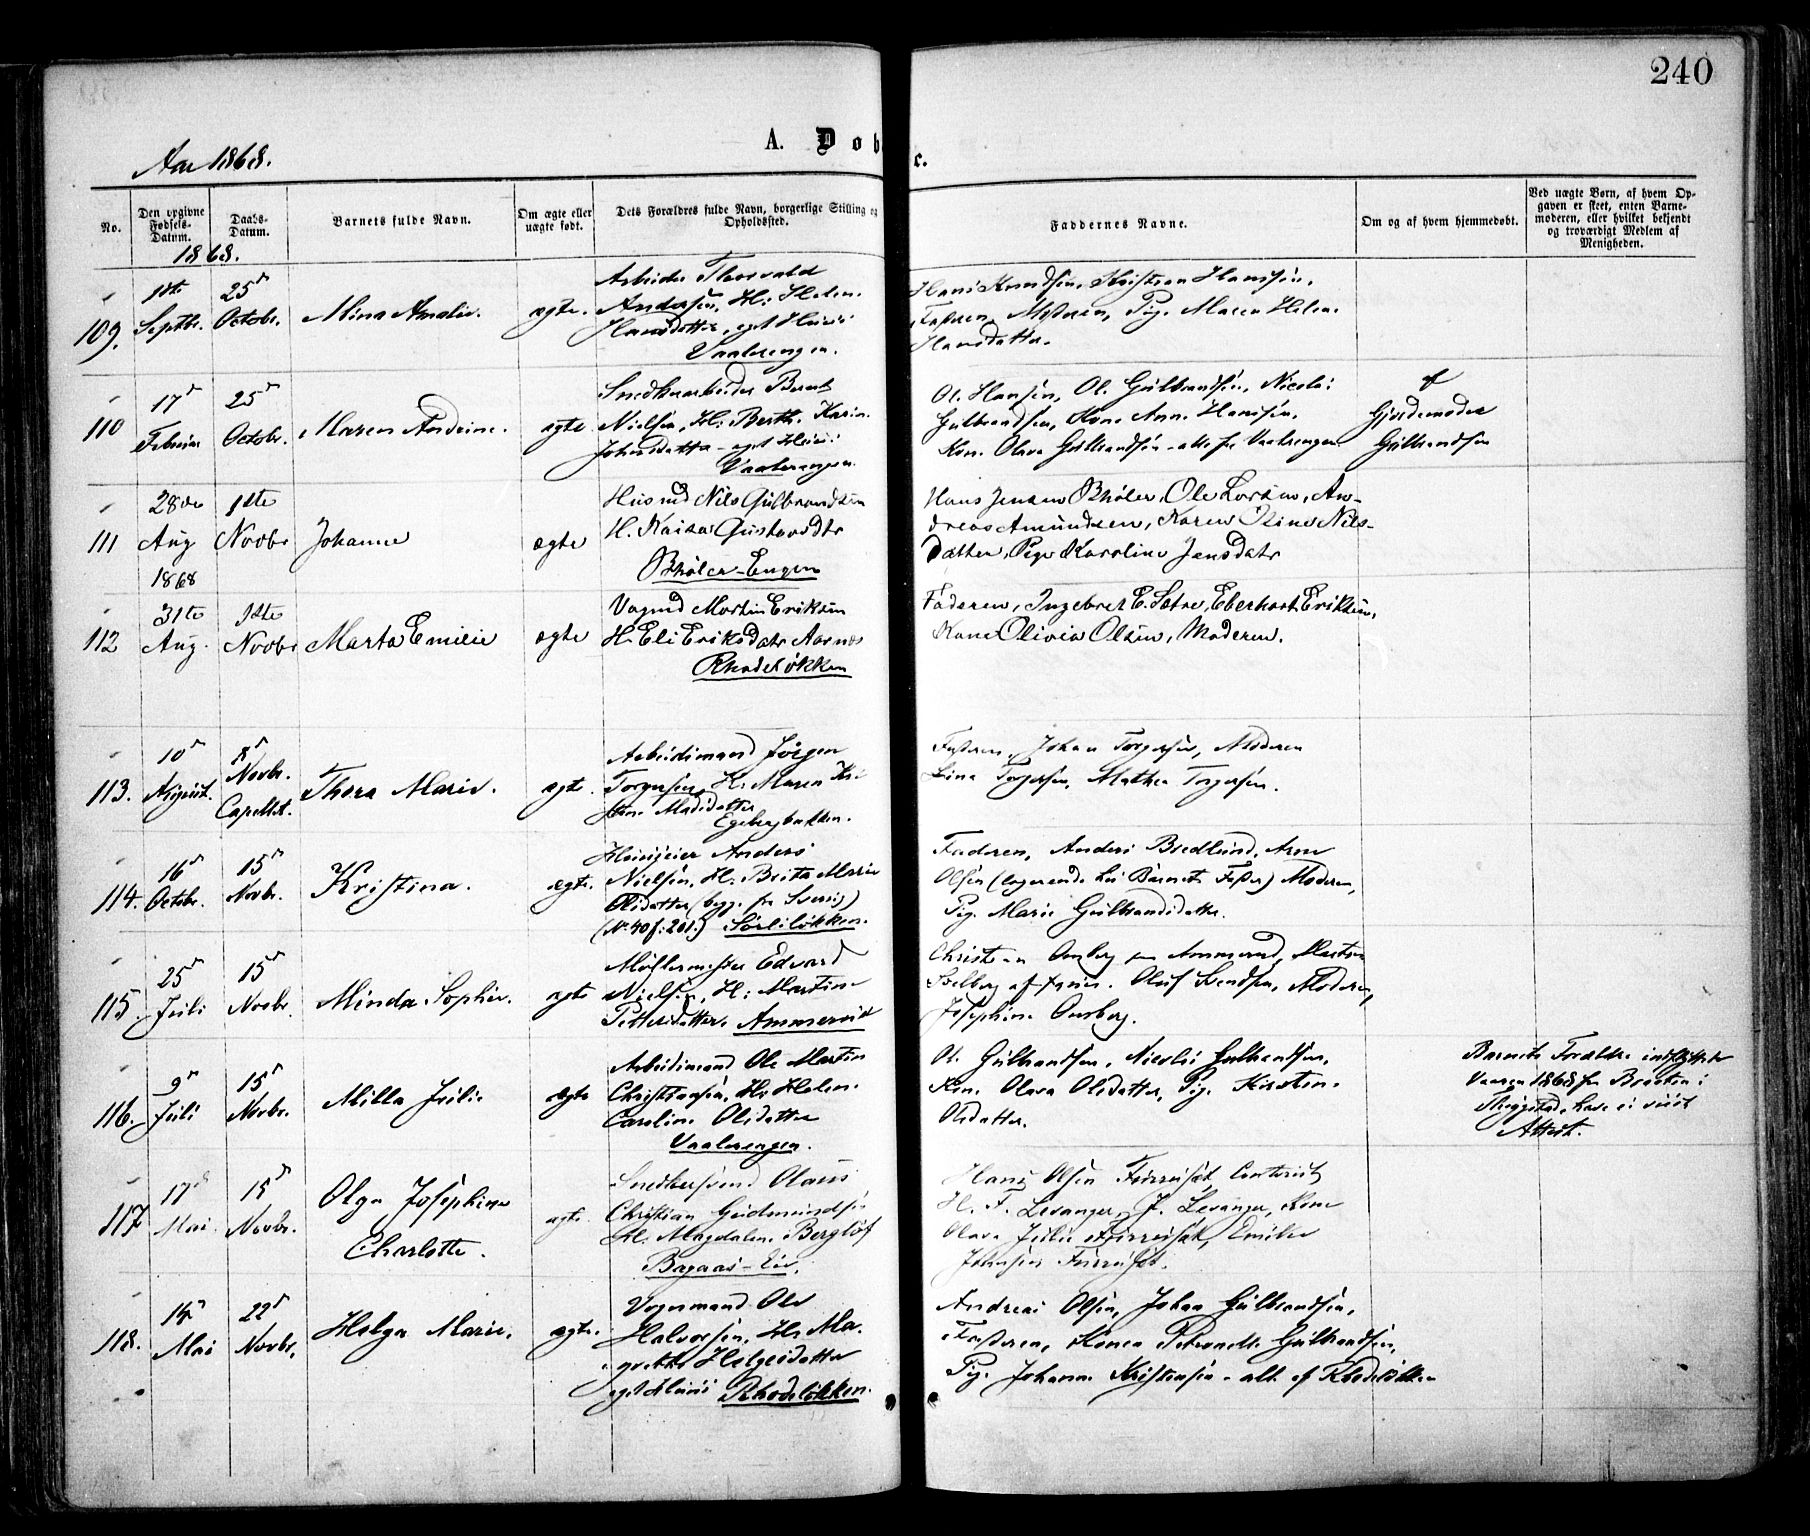 240
A. Døb c.
Aar 1868.
No.
Den opgivne Fødsels-Datum.
Daabs-Datum.
Barnets fulde Navn.
Om ægte eller uægte født.
Dets Forældres fulde Navn, borgerlige Stilling og Opholdssted.
Faddernes Navne.
Om og af hvem hjemmedøbt.
Ved uægte Børn, af hvem Opgaven er skeet, enten Barnemoderen, eller hvilket bekjendt og troværdigt Medlem af Menigheden.
1868.
109.
Septbr.
25
Octobr.
Mina Amalie.
ægte.
Arbeider Thorvald
Andersen, H: Helene
Hansdatter, eget Huus
Vaalerengen.
Hans Knudsen, Kristian Hansen,
Faderen, Moderen, Pige Maren Helene
Hansdatter.
110
17
Februar
25
Octobr.
Maren Andrine.
ægte
Snedkerarbeider Bernt
Nielsen, H: Berthe Karine
Johnsdatter - eget Huus
Vaalerengen.
Ole Hansen, Ole Gulbrandsen, Nicolai
Gulbrandsen, Kone Anne Hansen,
Kone Olava Gulbrandsen - alle fra Vaalerengen
af
Gjordemoder
Gulbrandsen
111
28de
Aug
1868
1ste
Novbr
Johanne
ægte
Husmd Nils Gulbrandsen
H. Kaisa Gustavsdtr
Bhøler-Engen
Hans Jensen Bhøler, Ole Larsen, An-
dreas Amundsen, Karen Oline Nils-
datter, Pige Karoline Jensdatr
112
31te
Aug.
1ste
Novbr
Marta Emilie
ægte
Vogmd Martin Eriksen
H. Eli Eriksdatr Aarnæs
Rhodeløkken
Faderen, Ingebret E. Sætre, Eberhart Eriksen,
Kone Olivia Olsen, Moderen.
113.
10
August.
8
Novbr.
Capellet.
Thora Marie.
ægte.
Arbeidsmand Jørgen
Torgersen, H: Maren Kri
stine Madsdatter
Egebergbakken.
Faderen, Johan Torgersen, Moderen
Lina Torgersen, Mathea Torgersen.
114.
16
Octobr.
15
Novbr.
Kristina.
ægte.
Anders
Nielsen, H: Brita Marie
Olsdatter (begge fra Sverig)
(No 40 f: 201.) Sørliløkken.
Faderen, Anders Bredlund, Arne
Olsen (logerende hos Barnets Fader) Moderen,
Pige Marie Gulbrandsdatter.
115.
25
Juli
15
Novbr.
Minda Sophie.
ægte
Møllermester Edvard
Nielsen, H: Martine
Pettersdatter. Ammerud
Christian Ousberg fra Ammerud, Martin
Solberg af Oluf Svendsen, Moderen,
Josephine Ousberg.
116.
9
Juli
15
Novbr.
Milla Julie
ægte
Arbeidsmand Ole Martin
Christiansen, H: Helene
Caroline Olsdatter
Vaalerengen.
Ole Gulbrandsen, Nicolai Gulbrandsen,
Kone Olava Olsdatter, Pige Kirsten
Olsdatter.
Barnets Forældre indflyttede
Vaaren 1868 fra
have ei viist
Attest.
117
17
Mai.
15
Novbr.
Olga Josephine
Charlotte.
ægte.
Snedkersvend Olaus
Christian Gudmundsen
H: Magdalene Berglöf
Hans Olsen Furuset, Contorist
H. F. Levanger, J. Levanger, Kone
Olava Julie Furuset, Emilie
Johnsen Furuset.
118.
14
Mai
22
Novbr.
Helga Marie.
ægte.
Vognmand Ole
Halvorsen, H: Ma-
grethe Helgesdatter
eget Huus Rhodeløkken.
Andreas Olsen, Johan Gulbrandsen,
Faderen, Konen Petronelle Gulbrandsen,
Pige Johanne Kristensen - alle af Rhodeløkken